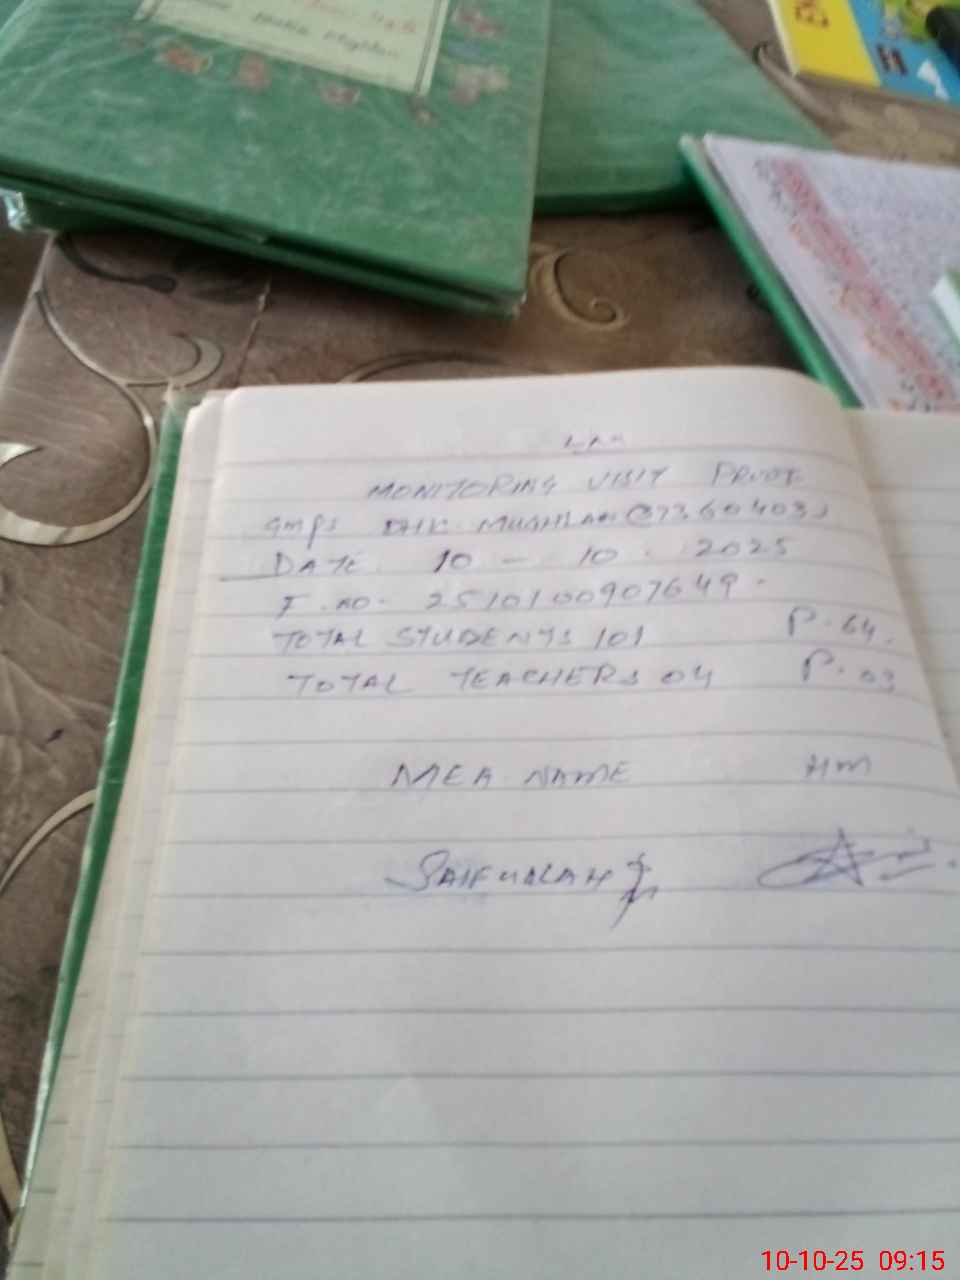 MONITORING VISIT PROOF
GMPS DHK MUGHLAN @73604031
DATE 10 - 10 - 2025
F.NO- 2510100907649.
TOTAL STUDENTS 101 P.64.
TOTAL TEACHERS 04 P.03
MEA NAME HM
SAIFULLAH
10-10-25 09:15